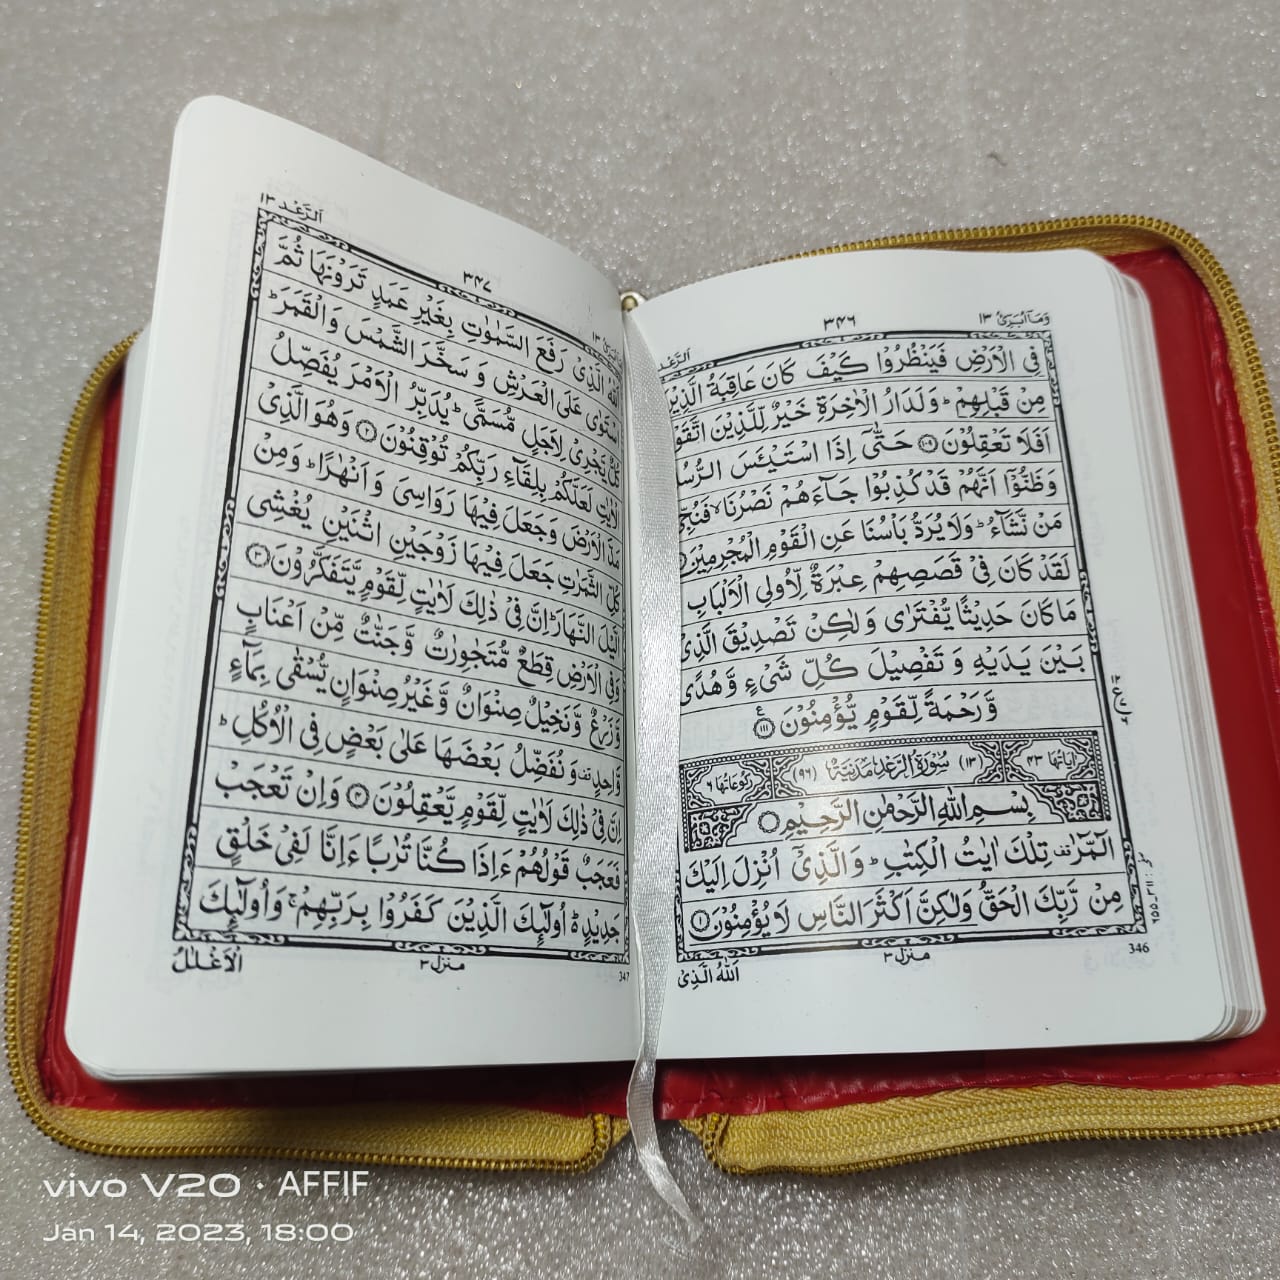 وَمَآ اُبَرِّئُ ١٣
٣٤٦
اَلرَّعْد
فِى الْاَرْضِ فَيَنْظُرُوْا كَيْفَ كَانَ عَاقِبَةُ الَّذِيْنَ
مِنْ قَبْلِهِمْ ؕ وَلَدَارُ الْاٰخِرَةِ خَيْرٌ لِّلَّذِيْنَ اتَّقَوْا
اَفَلَا تَعْقِلُوْنَ ۝١٠٩ حَتّٰۤى اِذَا اسْتَيْـَٔسَ الرُّسُ
وَظَنُّوْۤا اَنَّهُمْ قَدْ كُذِبُوْا جَآءَهُمْ نَصْرُنَا ۙ فَنُجِّ
مَنْ نَّشَآءُ ؕ وَلَا يُرَدُّ بَاْسُنَا عَنِ الْقَوْمِ الْمُجْرِمِيْنَ
لَقَدْ كَانَ فِىْ قَصَصِهِمْ عِبْرَةٌ لِّاُولِى الْاَلْبَابِ
مَا كَانَ حَدِيْثًا يُّفْتَرٰى وَلٰكِنْ تَصْدِيْقَ الَّذِىْ
بَيْنَ يَدَيْهِ وَ تَفْصِيْلَ كُلِّ شَىْءٍ وَّ هُدًى
وَّ رَحْمَةً لِّقَوْمٍ يُّؤْمِنُوْنَ ۝١١١ ع
اٰيَاتُهَا ٤٣ (١٣) سُوْرَةُ الرَّعْدِ مَدَنِيَّةٌ (٩٦) رُكُوْعَاتُهَا ٦
بِسْمِ اللّٰهِ الرَّحْمٰنِ الرَّحِيْمِ ۝
الٓمّٓرٰ ۟ قف تِلْكَ اٰيٰتُ الْكِتٰبِ ؕ وَالَّذِىْۤ اُنْزِلَ اِلَيْكَ
مِنْ رَّبِّكَ الْحَقُّ وَلٰكِنَّ اَكْثَرَ النَّاسِ لَا يُؤْمِنُوْنَ ۝١
منزل ٣
346
اَللّٰهُ الَّذِىْ
١٣
٣٤٧
اَلرَّعْد ١٣
اَللّٰهُ الَّذِىْ رَفَعَ السَّمٰوٰتِ بِغَيْرِ عَمَدٍ تَرَوْنَهَا ثُمَّ
اسْتَوٰى عَلَى الْعَرْشِ وَ سَخَّرَ الشَّمْسَ وَالْقَمَرَ ؕ
كُلٌّ يَّجْرِىْ لِاَجَلٍ مُّسَمًّى ؕ يُدَبِّرُ الْاَمْرَ يُفَصِّلُ
الْاٰيٰتِ لَعَلَّكُمْ بِلِقَآءِ رَبِّكُمْ تُوْقِنُوْنَ ۝٢ وَهُوَ الَّذِىْ
مَدَّ الْاَرْضَ وَجَعَلَ فِيْهَا رَوَاسِىَ وَ اَنْهٰرًا ؕ وَمِنْ
كُلِّ الثَّمَرٰتِ جَعَلَ فِيْهَا زَوْجَيْنِ اثْنَيْنِ يُغْشِى
الَّيْلَ النَّهَارَ ؕ اِنَّ فِىْ ذٰلِكَ لَاٰيٰتٍ لِّقَوْمٍ يَّتَفَكَّرُوْنَ ۝٣
وَفِى الْاَرْضِ قِطَعٌ مُّتَجٰوِرٰتٌ وَّجَنّٰتٌ مِّنْ اَعْنَابٍ
وَّ زَرْعٌ وَّ نَخِيْلٌ صِنْوَانٌ وَّ غَيْرُ صِنْوَانٍ يُّسْقٰى بِمَآءٍ
وَّاحِدٍ قف وَ نُفَضِّلُ بَعْضَهَا عَلٰى بَعْضٍ فِى الْاُكُلِ ؕ
اِنَّ فِىْ ذٰلِكَ لَاٰيٰتٍ لِّقَوْمٍ يَّعْقِلُوْنَ ۝٤ وَاِنْ تَعْجَبْ
فَعَجَبٌ قَوْلُهُمْ ءَاِذَا كُنَّا تُرٰبًا ءَاِنَّا لَفِىْ خَلْقٍ
جَدِيْدٍ ؕ اُولٰٓئِكَ الَّذِيْنَ كَفَرُوْا بِرَبِّهِمْ ۚ وَاُولٰٓئِكَ
منزل ٣
347
الْاَغْلٰلُ
vivo V20 · AFFIF
Jan 14, 2023, 18:00